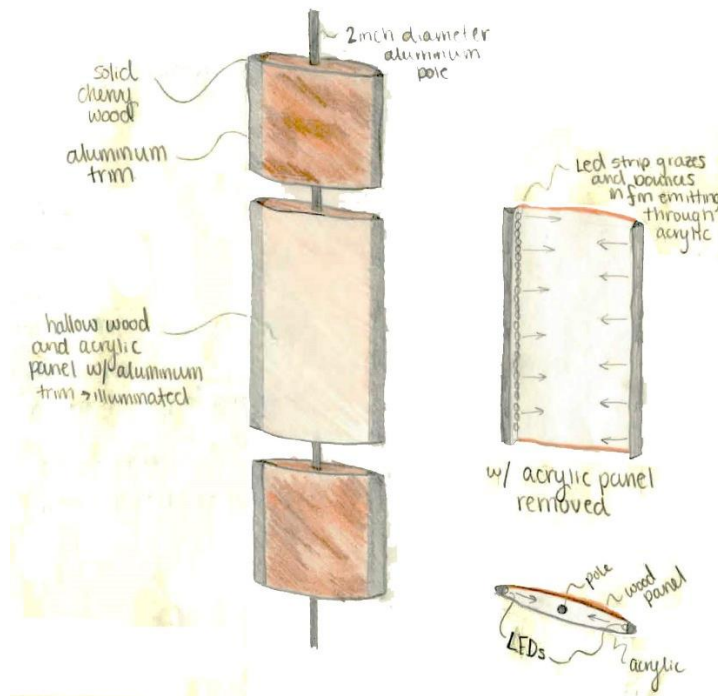 2inch diameter
aluminum
pole
solid
cherry
wood
aluminum
trim
hallow wood
and acrylic
panel w/ aluminum
trim → illuminated
Led strip grazes
and bounces
emitting
through
acrylic
w/ acrylic panel
removed
pole
wood
panel
LEDs
acrylic